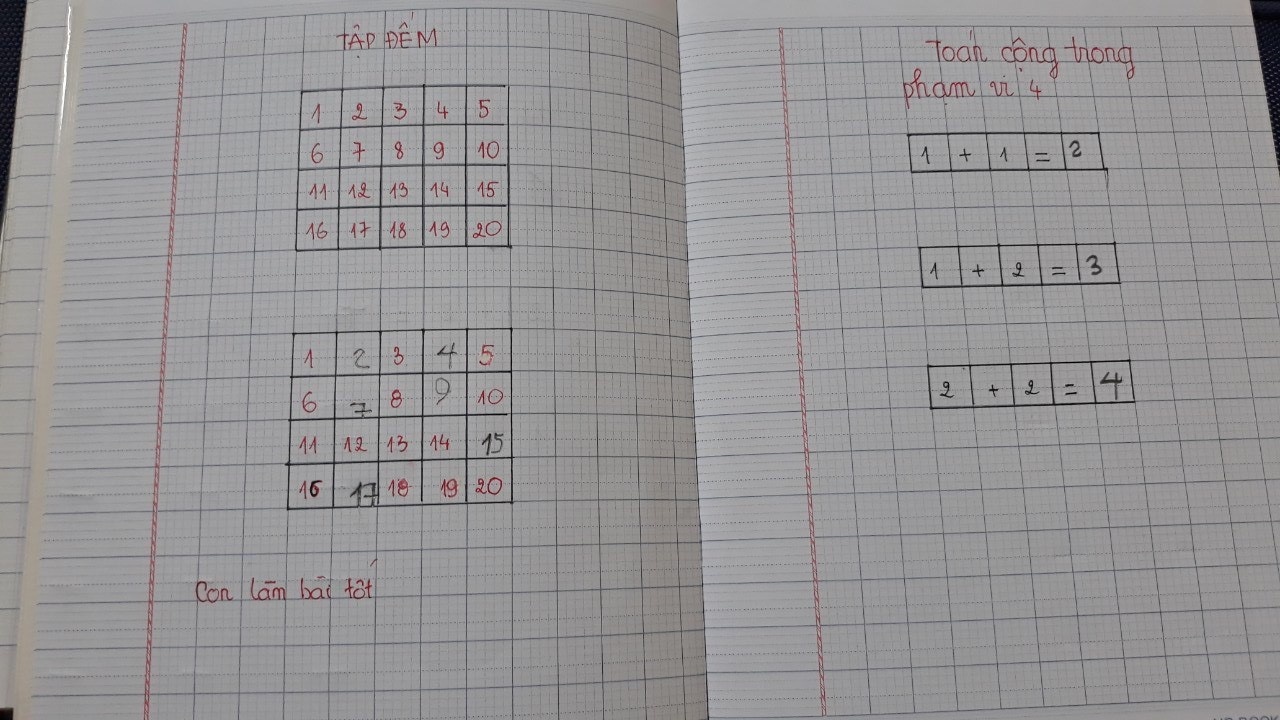 TẬP ĐẾM
1 2 3 4 5
6 7 8 9 10
11 12 13 14 15
16 17 18 19 20
1 2 3 4 5
6 7 8 9 10
11 12 13 14 15
16 17 18 19 20
Con làm bài tốt
Toán cộng trong
phạm vi 4
1 + 1 = 2
1 + 2 = 3
2 + 2 = 4